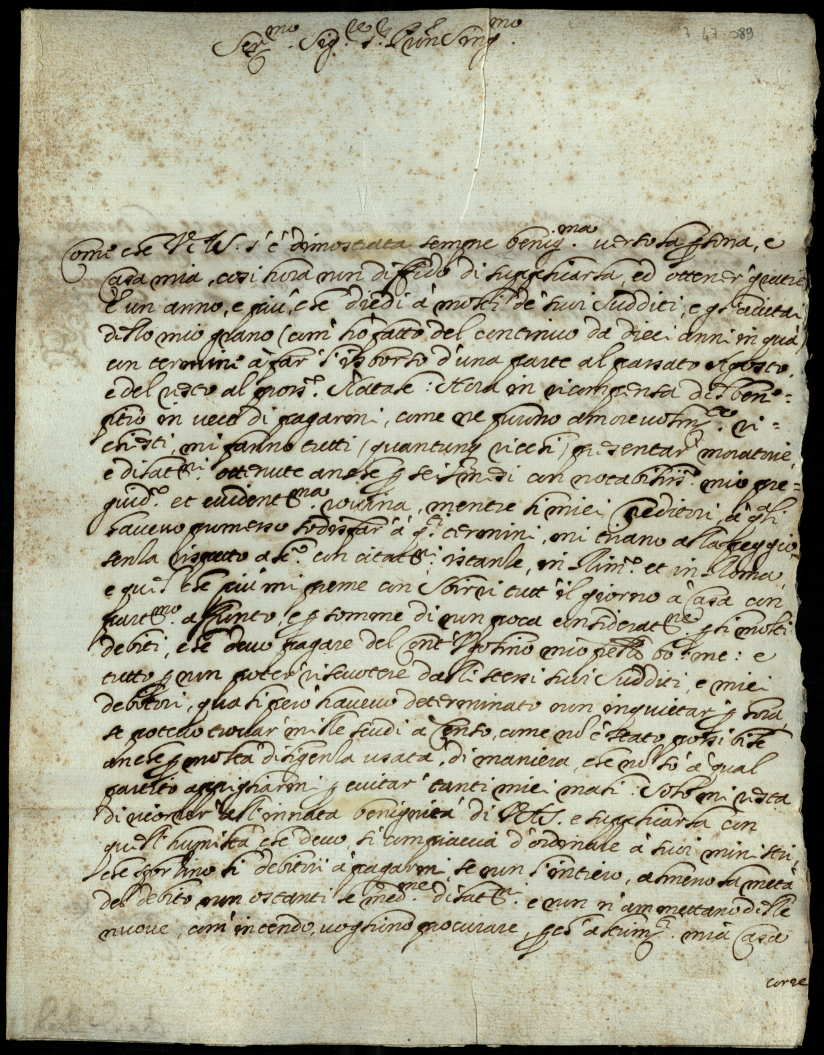 7 47 089
Ser.mo Sig.re S.r P.rôn Sing.mo
Come che V.A.S. s'è dimostrata sempre benig.ma verso la p̃sona, e
Casa mia, così hora non diffido di supplicarla, ed ottener' gratie
È un anno, e più, che diedi à molti de' suoi Sudditi, e
dello mio grano (com' hò fatto del continuo da dieci anni in quà)
con termine à far' l'isborso d'una parte al passato Agosto,
e del resto al pross.o Natale: Hora in ricompensa del bene=
fitio in vece di pagarmi, come ne furono amorevolm.te ri=
chiesti, mi fanno tutti (quantunq ricchi) presentar' moratorie,
e dilat.ni ottenute anche p̃ sei mesi con notabiliss.o mio pre=
giud.o et evident.ma rovina, mentre li miei Creditori, à quali
havevo promesso sodisfar' à q.ti termini, mi tirano alla peggio
senza rispetto con citat.ni istanze, in Rim.o et in Roma,
e quel che più mi preme con Sbirri tutt' il giorno à Casa con
affronto, e p̃ somme di non poca considerat.ne p̃ li molti
debiti, che devo pagare del mio fr̃ello bo: me: e
tutto p̃ non poter riscuotere dalli stessi suoi Sudditi, e miei
debitori, quali però havevo determinato non inquietar' p̃ hora,
se potevo trovar' mille scudi à Censo, come nõ è stato possibile
anche p̃ molta diligenza usata, di maniera, che nõ sò à qual
partito appigliarmi p̃ evitar' tanti miei mali: Solo mi resta
di ricorrer' all'innata benignità di V.A.S. e supplicarla con
quell'humiltà che devo, si compiaccia d'ordinare à suoi ministri,
che li debitori à pagarmi, se non l'intiero, almeno la metà
del debito non ostanti le med.me dilat.ni e non n'ammettano delle
nuove, com' intendo, vogliono procurare, mia Casa
corre